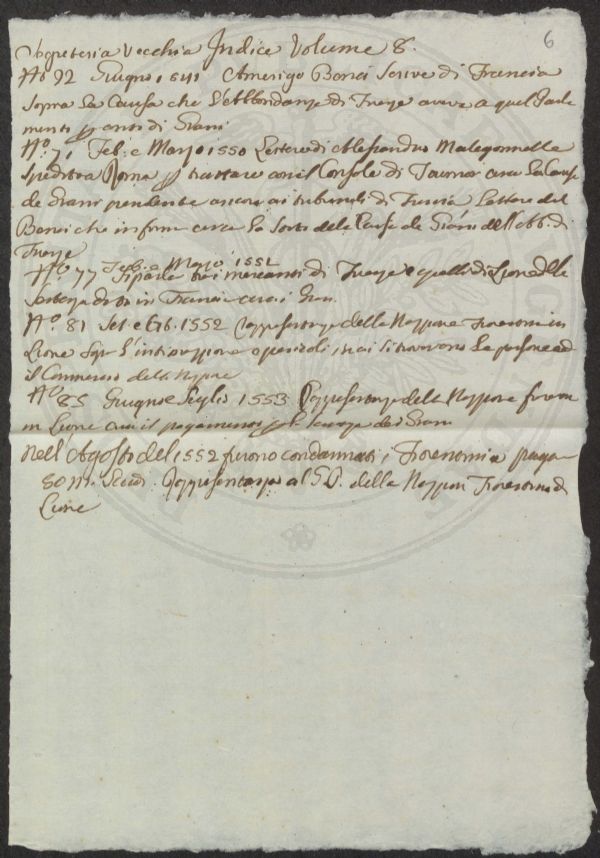 Segreteria Vecchia Indice Volume 8.
6
No 22 Giugno 1541 Amerigo Benci Scrive di Francia
sopra la Causa che l'Abbondanza di Firenze aveva a quel Parla
mento di Grani
No. 71 Feb: e Marzo 1550 Lettere di Alessandro Malegonnelle
spedito a Roma trattare con il Console di la Causa
de Grani pendente ancora ai tribunali di Francia Lettere del
Benci che informa circa la Sorte della Causa de Grani dell'Abb. di
Firenze
No. 77 Feb: e Marzo 1552 Si parla tra i mercanti di Firenze e quelli di Lione della
in Francia circa i Grani
No. 81 Set. e Ott. 1552 Rappresentanze della Nazione Fiorentina in
Lione Sopra l' e pericoli, in cui si trovavano le persone ed
il Commercio della Nazione
No. 85 Giugno e Luglio 1553 Rappresentanze della Nazione Fioren
in Lione circa il pagamento dei Grani
Nell'Agosto del 1552 furono condannati i Fiorentini a pagar
50 m. Scudi. Rappresentanza al S.D. della Nazion Fiorentina di
Lione